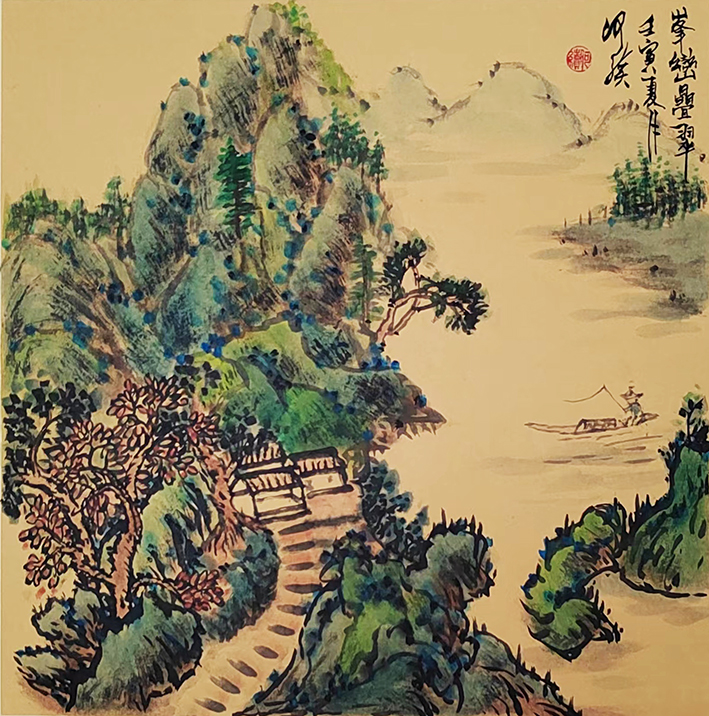 峯巒疊翠
壬寅夏月